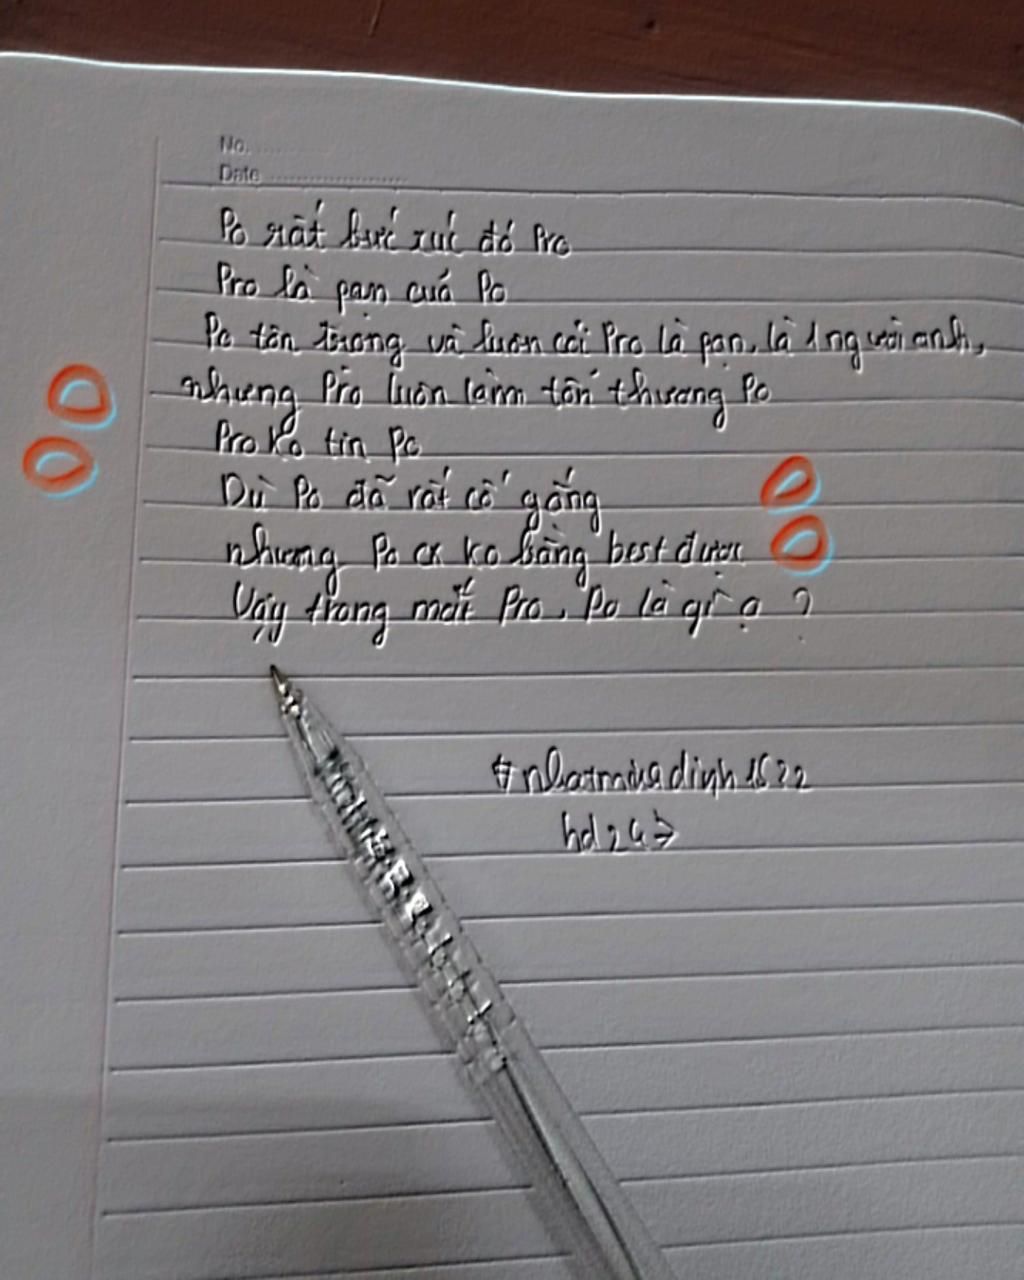 No.
Date
Po rất bức xúc đó Pro
Pro là pạn cuả Po
Po tôn trọng và luôn coi Pro là pạn, là 1 người anh,
nhưng Pro luôn làm tổn thương Po
Pro ko tin Po
Dù Po đã rất cố gắng
nhưng Po cx ko bằng best được
Vậy trong mắt Pro, Po là gì ạ ?
hd24